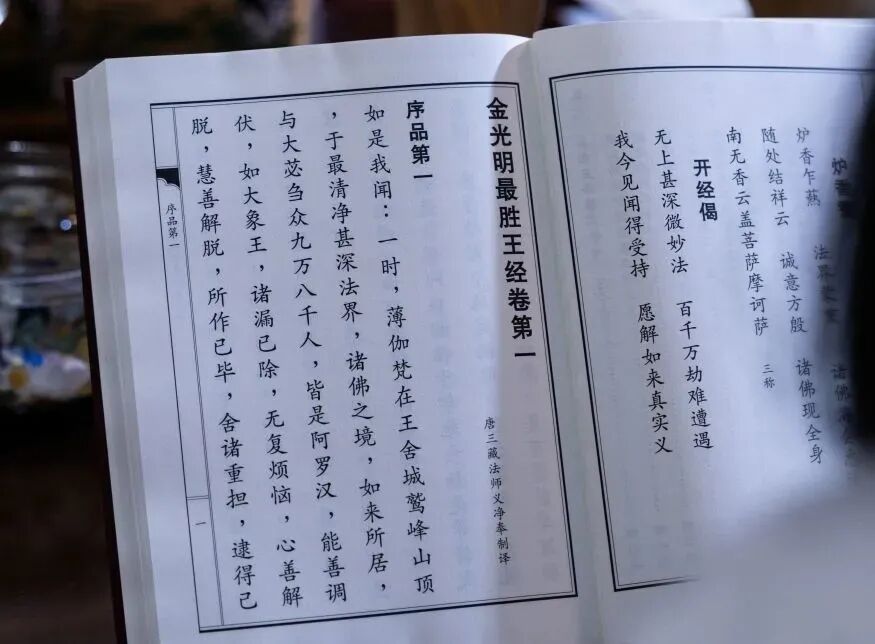 炉
炉香乍爇 法界 诸佛
随处结祥云 诚意方殷 诸佛现全身
南无香云盖菩萨摩诃萨 三称
开经偈
无上甚深微妙法 百千万劫难遭遇
我今见闻得受持 愿解如来真实义
金光明最胜王经卷第一
唐三藏法师义净奉制译
序品第一
如是我闻：一时，薄伽梵在王舍城鹫峰山顶
，于最清净甚深法界，诸佛之境，如来所居，
与大苾刍众九万八千人，皆是阿罗汉，能善调
伏，如大象王，诸漏已除，无复烦恼，心善解
脱，慧善解脱，所作已毕，舍诸重担，逮得己
序品第一
一